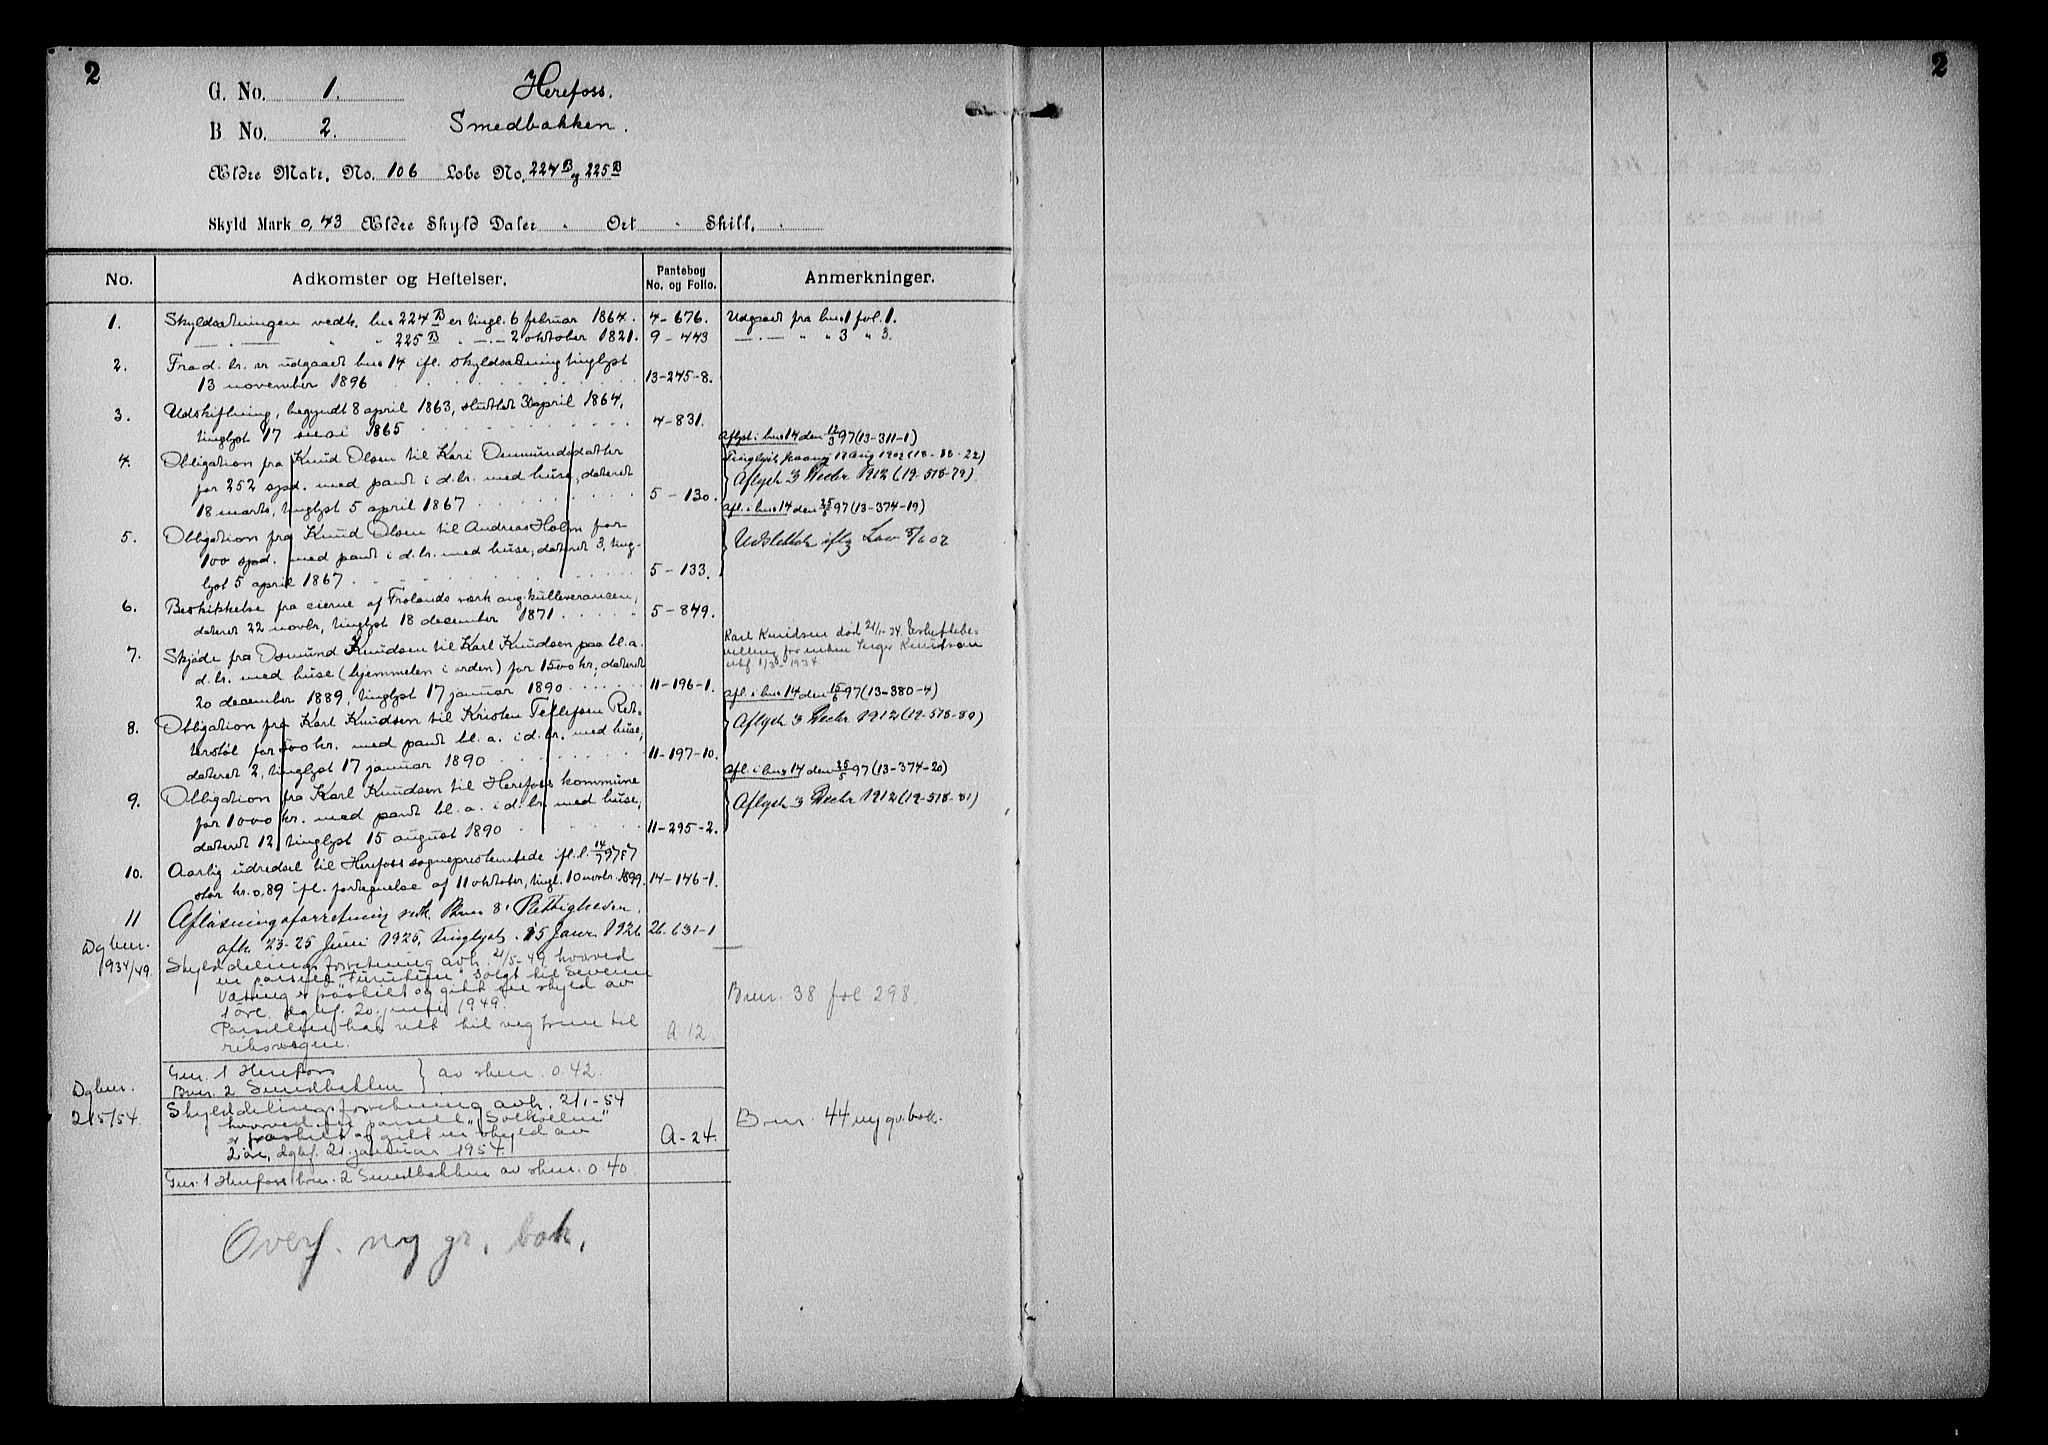 2
2
G. No. 1. Herefoss.
B No. 2. Smedbakken.
Ældre Matr. No. 106 Løbe No. 224 B og 225 B
Skyld Mark 0,43 Ældre Skyld Daler - Ort - Skill. -
No. Adkomster og Heftelser. Pantebog No. og Folio. Anmerkninger.
1. Skyldsætningen vedk. bno 224 B er tingl. 6 februar 1864. 4-676. Udgaaet fra bno 1 fol. 1.
— . — " " 225 B " —.— 2 oktober 1821. 9-443 —.— " " 3 " 3.
2. Fra d. br. er udgaaet bno 14 ifl. skyldsætning tinglyst
13 november 1896 13-245-8.
3. Udskiftning, begyndt 8 april 1863, sluttet 30 april 1864,
tinglyst 17 mai 1865 4-831.
Aflyst i bno 14 den 12/3 97 (13-311-1)
4. Obligation fra Knud Olsen til Kari Osmundsdatter
Tinglyst paany 12 Aug 1902 (18-88-22)
for 252 spd. med pant i d. br. med huse, dateret
Aflyst 3 Decbr 1912 (19-578-79)
18 marts, tinglyst 5 april 1867 5-130.
Afl. i bno 14 den 25/5 97 (13-374-19)
5. Obligation fra Knud Olsen til Andreas Holm for
Udslettet iflg Lov 8/6 07
100 spd. med pant i d. br. med huse, dateret 3, ting-
lyst 5 april 1867 5-133.
6. Beskikkelse fra eierne af Frolands værk ang. kulleverancen,
dateret 22 novbr, tinglyst 18 december 1871. 5-849.
Karl Knudsen død 21/1-34. Uskiftebe-
villing for enken Inger Knutsen
dbf. 1/3-1934
7. Skjøde fra Osmund Knudsen til Karl Knudsen paa bl. a.
d. br. med huse (hjemmelen i orden) for 1500 kr., dateret
20 december 1889, tinglyst 17 januar 1890 11-196-1.
Afl. i bno 14 den 15/6 97 (13-380-4)
8. Obligation fra Karl Knudsen til Kristen Tellefsen Ret-
Aflyst 3 Decbr 1912 (19-578-80)
terstøl for 500 kr. med pant bl. a. i d. br. med huse,
dateret 2, tinglyst 17 januar 1890 11-197-10.
Afl. i bno 14 den 25/5 97 (13-374-20)
9. Obligation fra Karl Knudsen til Herefoss kommune
Aflyst 3 Decbr 1912 (19-578-81)
for 1000 kr. med pant bl. a. i d. br. med huse,
dateret 12, tinglyst 15 august 1890 11-295-2.
10. Aarlig udredsel til Herefoss sogneprestembede ifl. l. 14/7
stor kr. 0,89 ifl. fortegnelse af 11 oktober, tingl. 10 novbr. 1899. 14-146-1.
11 Afløsningsforretning vedk. Bnr 8's Rettigheder,
afh. 23-25 Juni 1925, tinglyst 15 Janr. 1926 26. 631-1
Dgbnr.
1934/49. Skylddelingsforretning avh. 21/5-49, hvorved
en parsell "Furutun" solgt til Severin
er fraskilt og gitt en skyld av
1 øre, dgbf. 20. juni 1949. Bnr. 38 fol 298.
Parsellen har rett til veg frem til
riksvegen. A 12
Gnr. 1 Herefoss
Bnr. 2 Smedbakken } av skm. 0.42.
Dgbnr.
215/54. Skylddelingsforretning avh. 2/1-54
hvorved en parsell "Solkollen" Bnr. 44 ny gr. bok.
er fraskilt og gitt en skyld av
2 øre, dgbf. 21. januar 1954. A-24.
Gnr. 1 Herefoss bnr. 2 Smedbakken av skm. 0.40.
Overf. ny gr. bok.